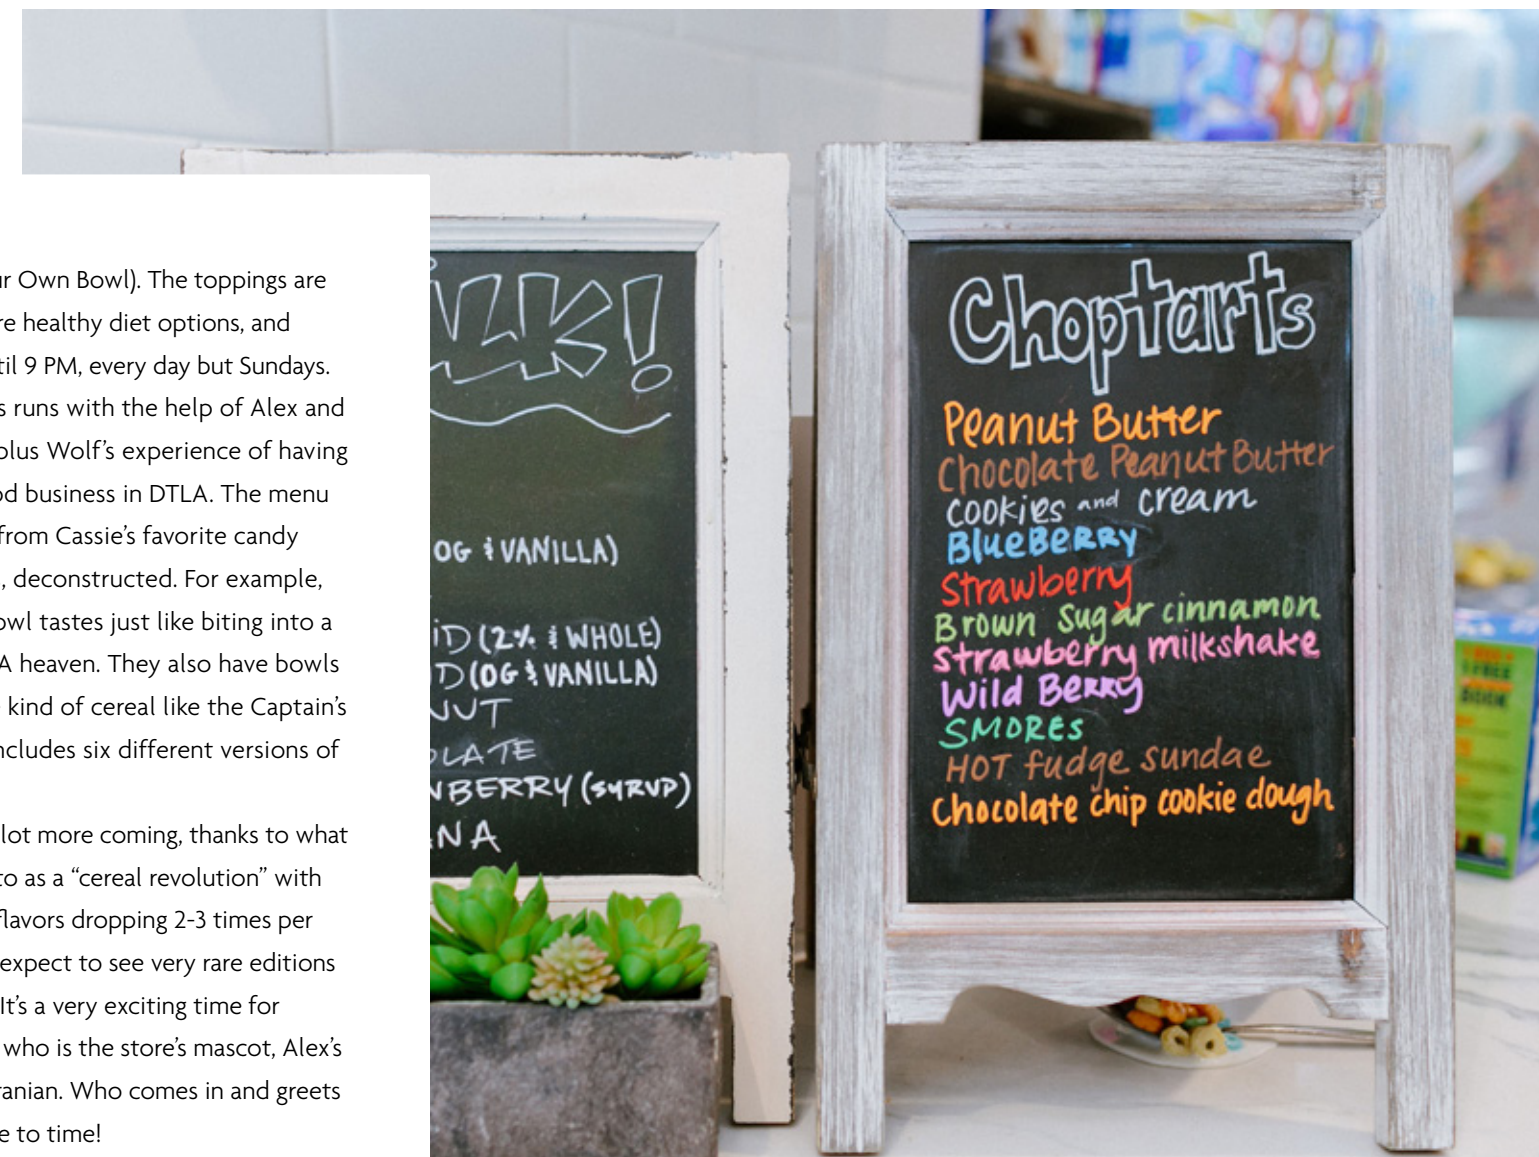 r Own Bowl). The toppings are
re healthy diet options, and
til 9 PM, every day but Sundays.
s runs with the help of Alex and
plus Wolf’s experience of having
od business in DTLA. The menu
from Cassie’s favorite candy
, deconstructed. For example,
owl tastes just like biting into a
A heaven. They also have bowls
kind of cereal like the Captain’s
ncludes six different versions of
lot more coming, thanks to what
to as a “cereal revolution” with
flavors dropping 2-3 times per
expect to see very rare editions
It’s a very exciting time for
who is the store’s mascot, Alex’s
ranian. Who comes in and greets
e to time!
LK!
OG & VANILLA)
iD (2% & WHOLE)
D (OG & VANILLA)
NUT
OLATE
BERRY (SYRUP)
NA
Choptarts
Peanut Butter
Chocolate Peanut Butter
COOKies and cream
BlueBeRRy
Strawberry
Brown Sugar cinnamon
Strawberry milkshake
Wild BeRRy
SMOREs
HOT fudge sundae
Chocolate chip cookie dough